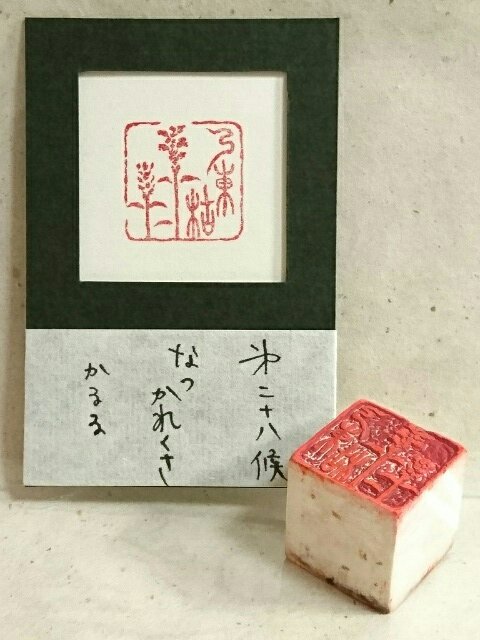 乃東
枯
㐧二十八候
なつ
かれくさ
かるる